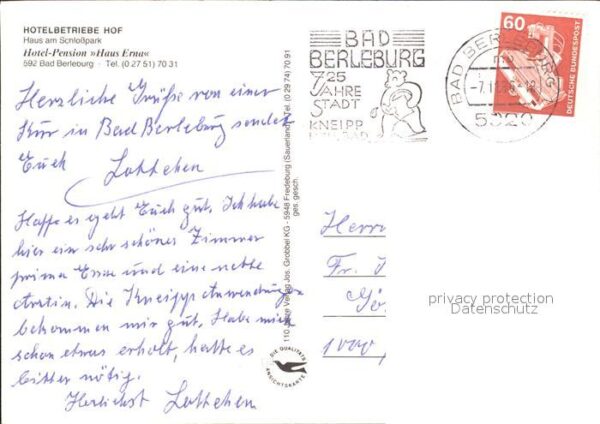 HOTELBETRIEBE HOF
Haus am Schloßpark
Hotel-Pension »Haus Erna«
592 Bad Berleburg · Tel. (0 27 51) 70 31
Herzliche Grüße von einer
Kur in Bad Berleburg sendet
Euch Lottchen
Hoffe es geht Euch gut. Ich habe
hier ein sehr schönes Zimmer
prima Essen und eine nette
Ärztin. Die Kneipp Anwendungen
bekommen mir gut. Habe mich
schon etwas erholt, hatte es
bitter nötig.
Herzlichst Lottchen
110 Jahre Verlag Jos. Grobbel KG - 5948 Fredeburg (Sauerland) Tel. (0 29 74) 70 91
ges. gesch.
DIE QUALITÄTS
ANSICHTSKARTE
BAD
BERLEBURG
725
JAHRE
STADT
KNEIPP
HEILBAD
BAD BERLEBURG
5920
60
DEUTSCHE BUNDESPOST
Herrn
Fr.
1000
privacy protection
Datenschutz